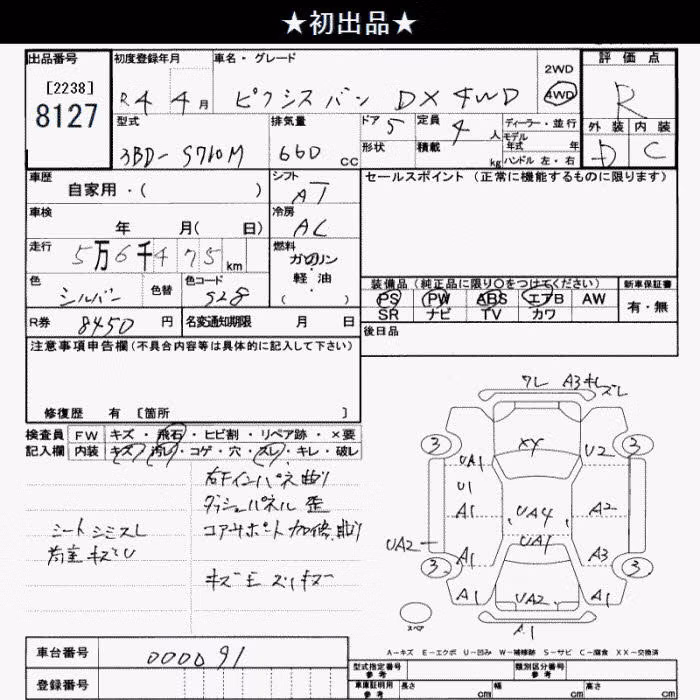 ★初出品★
出品番号 初度登録年月 車名・グレード 2WD 評価点
[2238] R4 4月 ピクシスバン DX 4WD 4WD R
8127 型式 排気量 ドア 5 定員 4人 ディーラー・並行 外装 内装
3BD-S710M 660cc 形状 積載 kg モデル年式 年 D C
ハンドル左・右
車歴 シフト セールスポイント(正常に機能するものに限ります)
自家用・( ) AT
車検 冷房
年 月( 日) AC
走行 燃料
5万6千475km ガソリン・軽油
( )
色 色替 色コード 装備品(純正品に限り○をつけてください) 新車保証書
シルバー S28 PS PW ABS エアB AW 有・無
SR ナビ TV カワ
R券 8450円 名変通知期限 月 日 後日品
注意事項申告欄(不具合内容等は具体的に記入して下さい)
修復歴 有 [箇所 ]
検査員 FW キズ・飛石・ヒビ割・リペア跡・×要
記入欄 内装 キズ・汚レ・コゲ・穴・スレ・キレ・破レ
右Fインパネ曲り
ダッシュパネル 歪
シートシミスレ コアサポート加修、曲り
荷室キズU
ワレ A3キレズレ
3 3
XY
UA1 U2
U1
A1 UA4 A2
UA2 UA1
A1 A3
3 3
A1 UA2 A1
スペア A1
A-キズ E-エクボ U-凹み W-補修跡 S-サビ C-腐食 XX-交換済
車台番号 0000091
型式指定番号 参考 類別区分番号 参考
登録番号 車庫証明用 参考 長さ cm 幅 cm 高さ cm